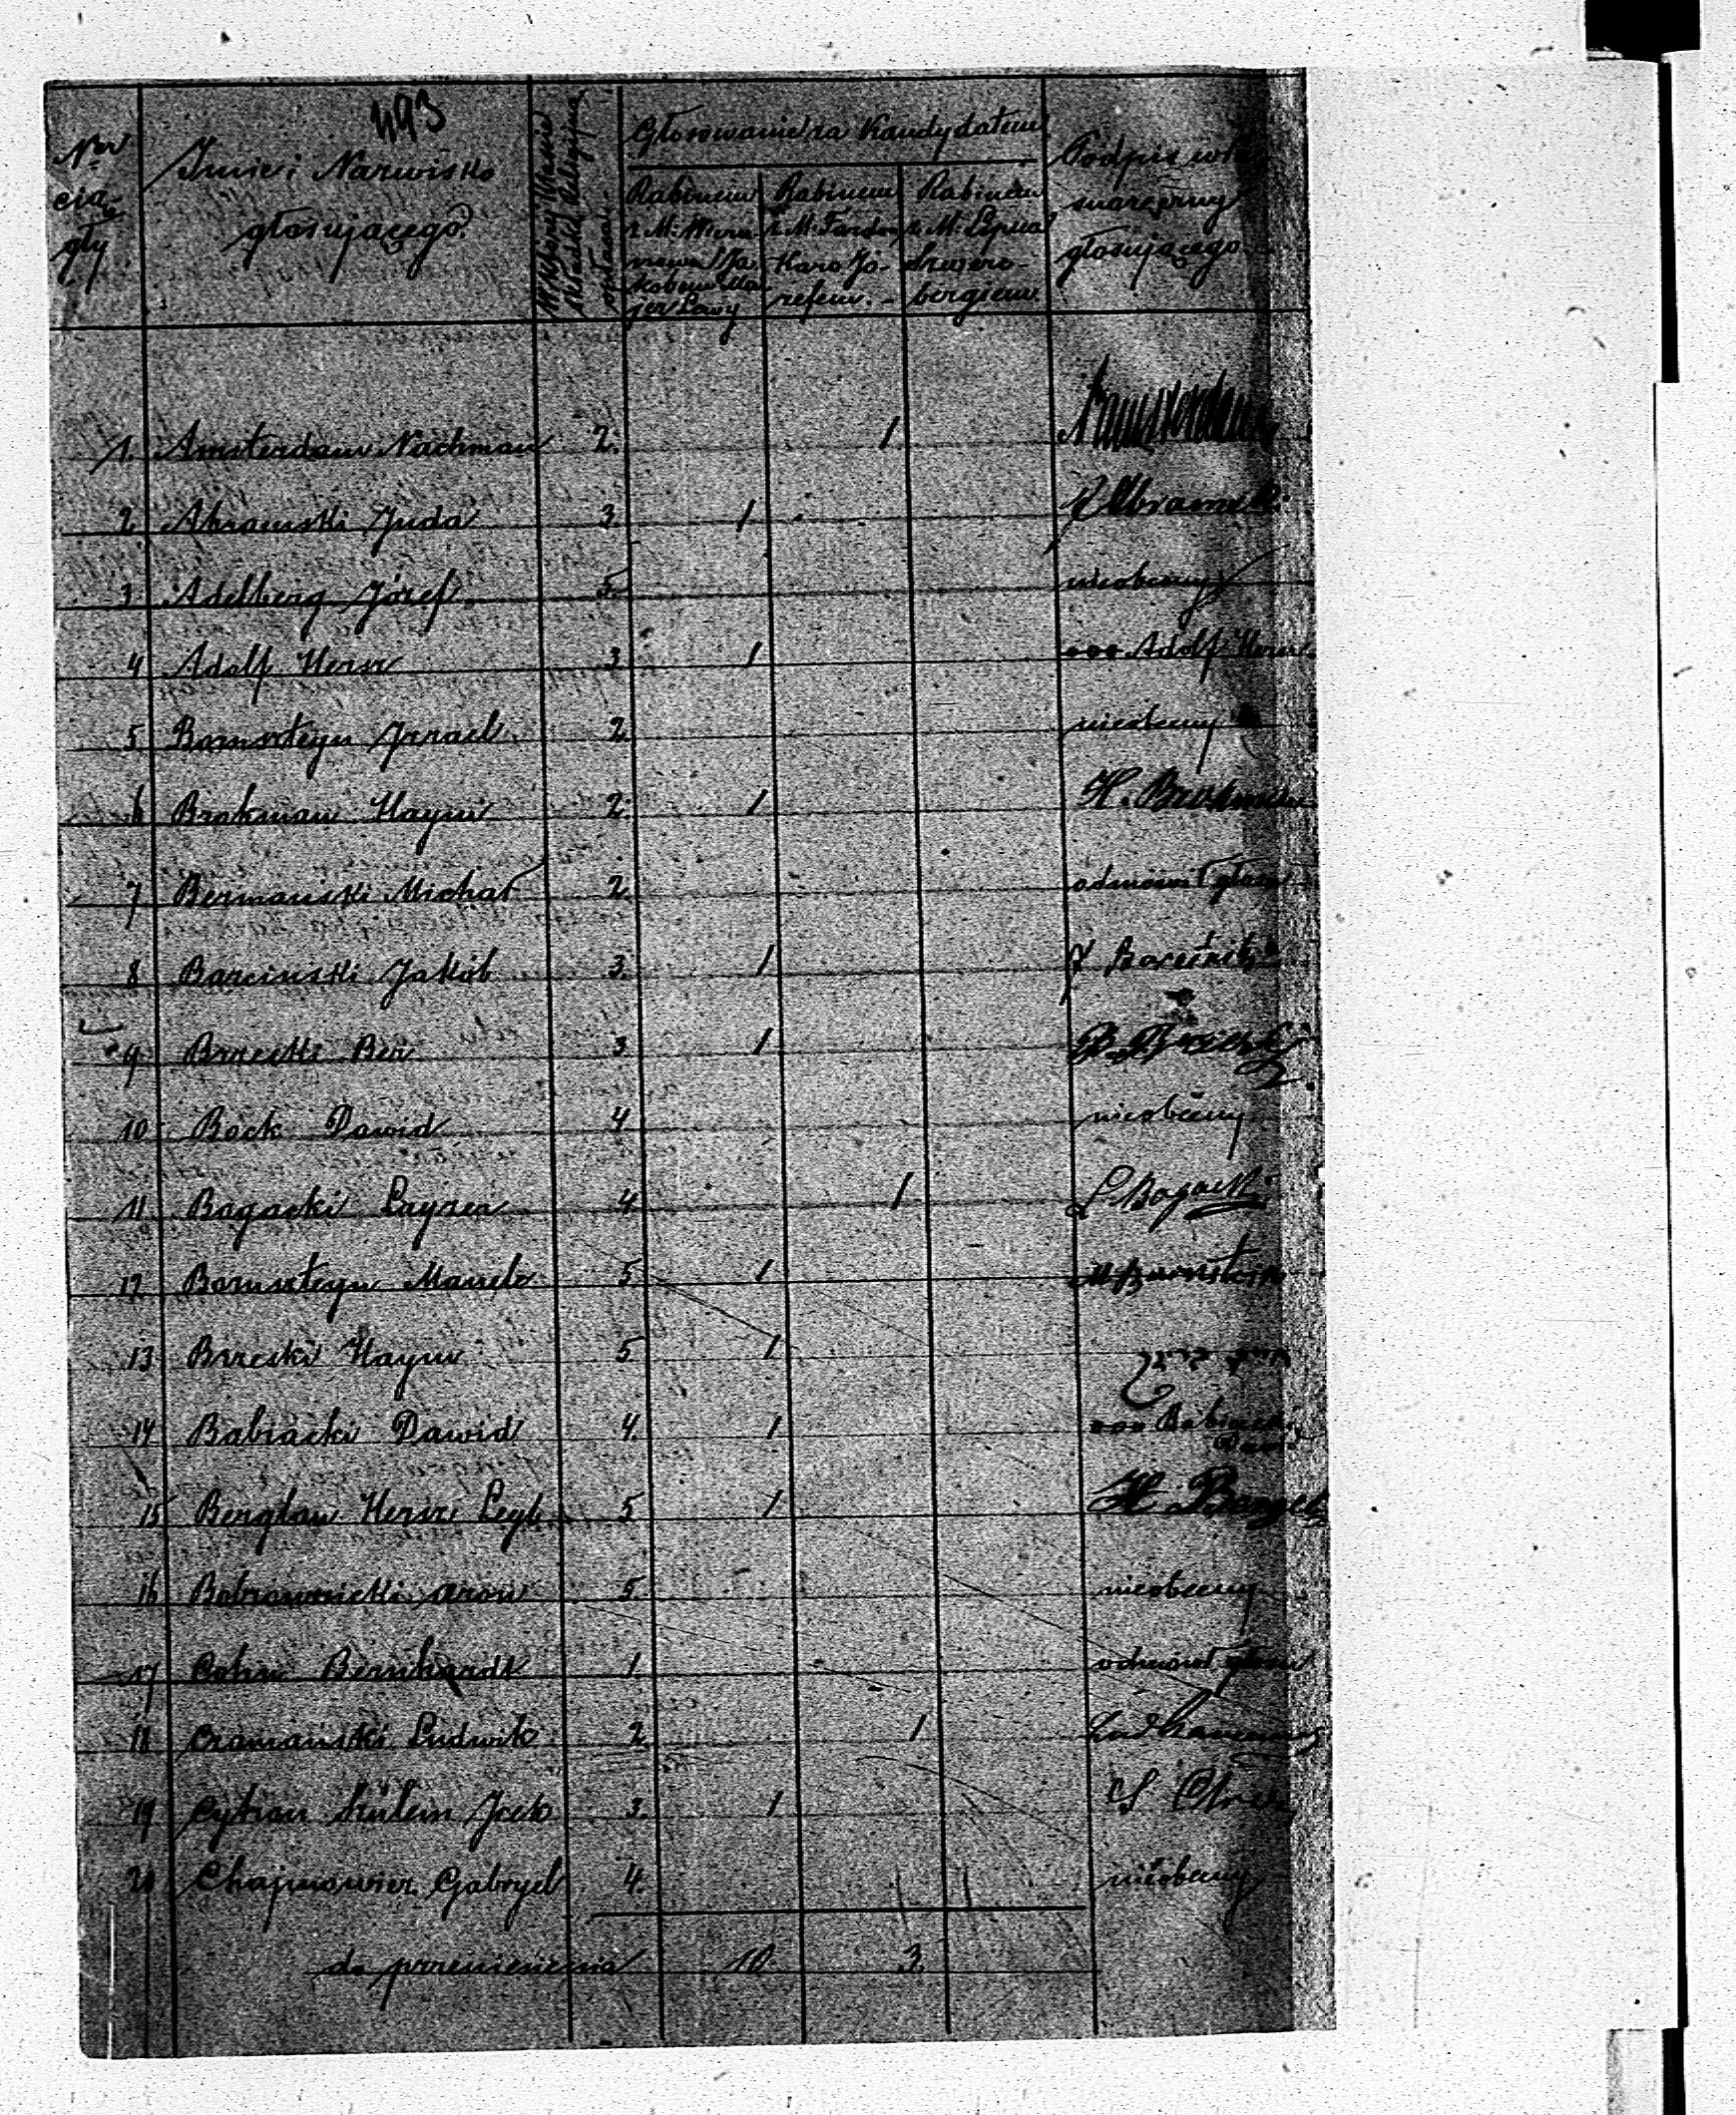 493
Nr cią-gły
Imie i Nazwisko
głosującego
W której klasie
składki Religijnej
Głosowanie za Kandydatem
Rabinem
z M:
Ja-
kobem Ma-
jer Lewy
Rabinem
z M:
Karo Jó-
zefem. -
Rabinem
z M: Lipna
Szwerc-
bergiem
Podpis
głosującego
1. Amsterdam Nachman 2. 1
2 Abramski Juda 3 1 Abramski
3 Adelberg Józef 5 nieobecny
4 Adolf Hersz 3 1 ooo Adolf Hersz
5 Bornszteyn Izrael 2 nieobecny
6 Brokman Haym 2. 1 H. Brokman
7 Bermański Michał 2. odmówił głosu
8 Barciński Jakób 3 1 J Barciński
9 Brzeski Ber 3 1 B. Brzeski
10 Bock Dawid 4 nieobecny
11 Bogacki Layzer 4 1 L Bogacki
12 Bornszteyn Manele 5 1 M Bornstein
13 Brzeski Haym 5 1
14 Babiacki Dawid 4. 1 ooo Babiacki
Dawid
15 Hersz Leyb 5 1 H
16 Aron 5. nieobecny
17 Cohn Bernhardt 1 odmówił głosu
18 Czamański Ludwik 2 1
19 Cytron Szulem Icek 3. 1 S
20 Chaimowicz Gabryel 4. nieobecny
do przeniesienia 10. 3.